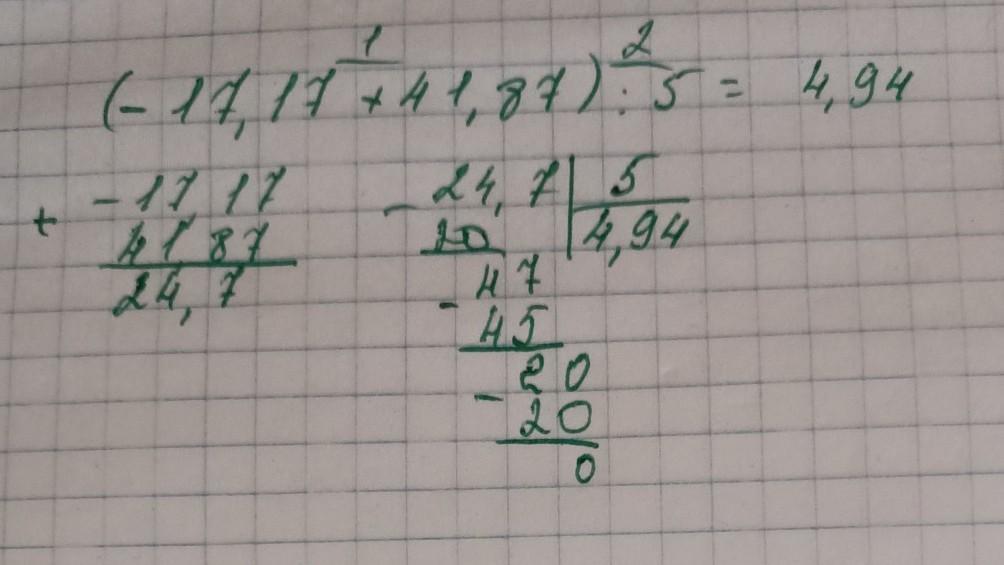 1 2
(- 17,17 + 41,87) : 5 = 4,94
+ - 17,17
41,87
24,7
- 24,7 | 5
20 4,94
- 47
45
- 20
20
0